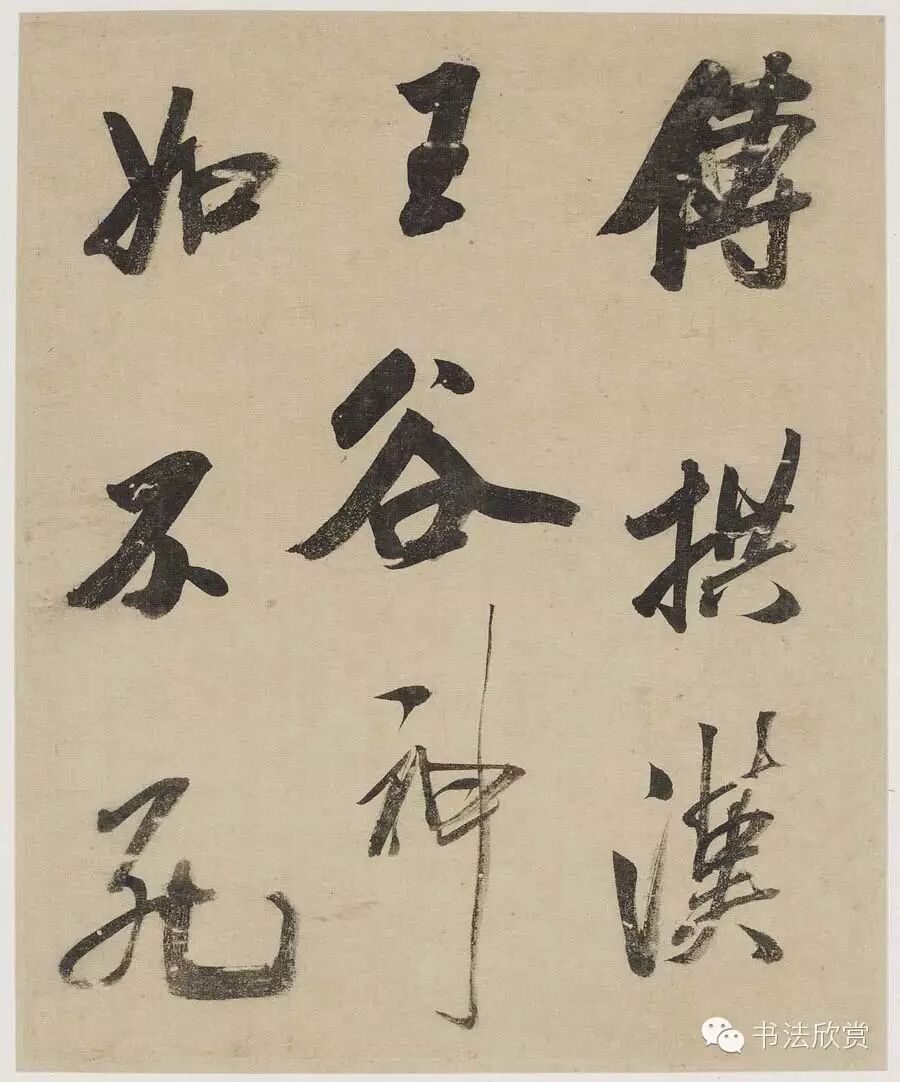 傳拱漢
王谷神
如不死
书法欣赏